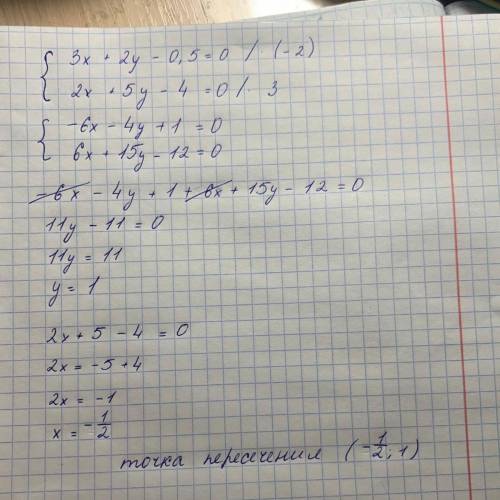 3x + 2y - 0,5 = 0 / · (-2)
2x + 5y - 4 = 0 / · 3
-6x - 4y + 1 = 0
6x + 15y - 12 = 0
-6x - 4y + 1 + 6x + 15y - 12 = 0
11y - 11 = 0
11y = 11
y = 1
2x + 5 - 4 = 0
2x = -5 + 4
2x = -1
x = -1/2
точка пересечения (-1/2; 1)